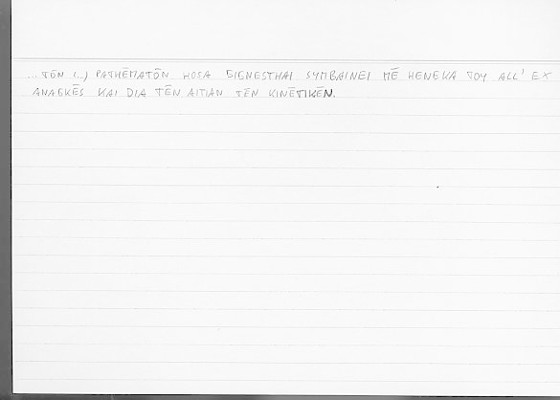 ... TŌN (...) PATHĒMATŌN HOSA GIGNESTHAI SYMBAINEI MĒ HENEKA TOY ALL' EX
ANAGKĒS KAI DIA TĒN AITIAN TĒN KINĒTIKĒN.